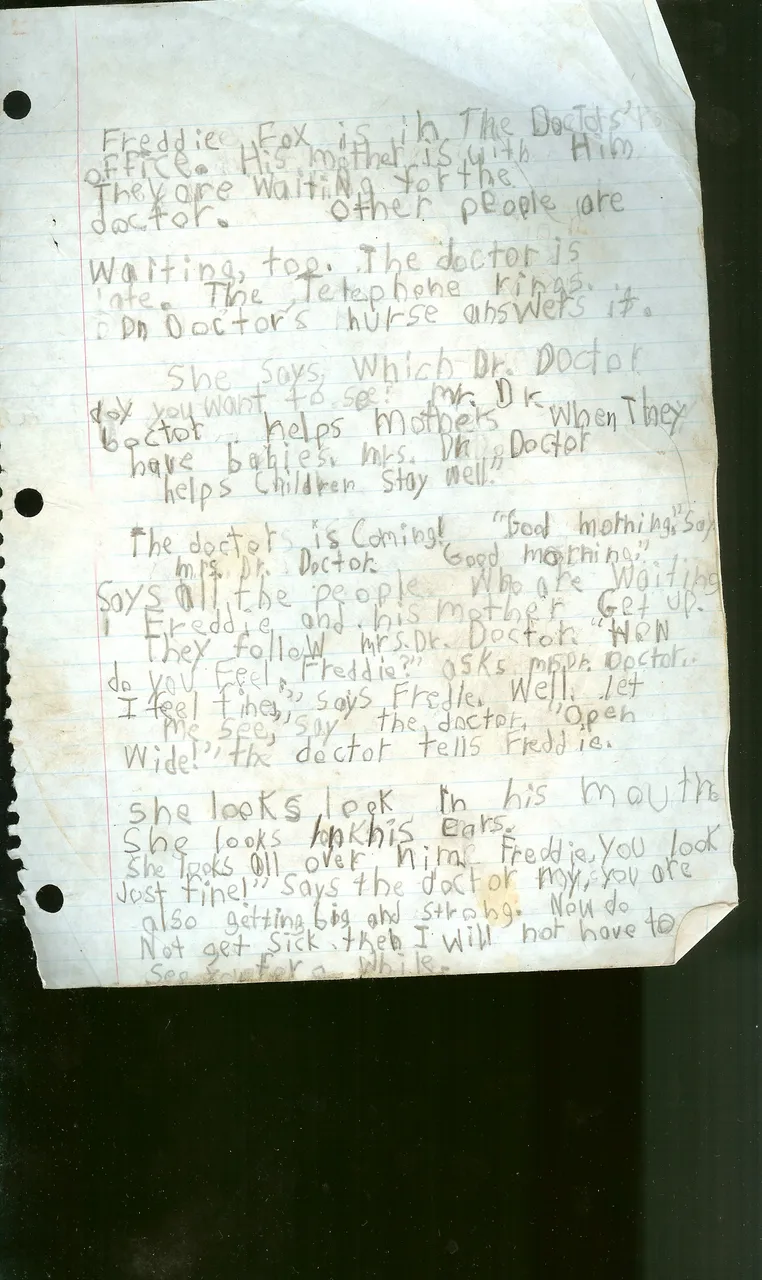 Freddie Fox is in The Doctors's
office. His mother is with Him
They are waiting for the
doctor. Other people are
Waiting, too. The doctor is
late. The Telephone rings.
Dn Doctor's nurse answers it.
She Says, Which Dr. Doctor
doy you want to see? mr. Dr.
Doctor helps mothers When They
have babies. mrs. Dn Doctor
helps Children Stay well."
The doctor is Coming! "Good morning," Say
mrs. Dr. Doctor. "Good morning,"
Says all the people Who are Waiting
Freddie and his mother Get up.
They follow mrs. Dr. Doctor. "HoW
do you Feel, Freddie?" asks mrs Dr. Doctor.
I feel fine," says Fredie. Well, let
me see, say the doctor. "Open
Wide!" the doctor tells Freddie.
she looks look in his mouth
She looks his Ears.
She looks all over him. Freddie, you look
Just fine!" Says the doctor my, you are
also getting big and strong. Now do
Not get Sick. then I will not have to
See you for a While.